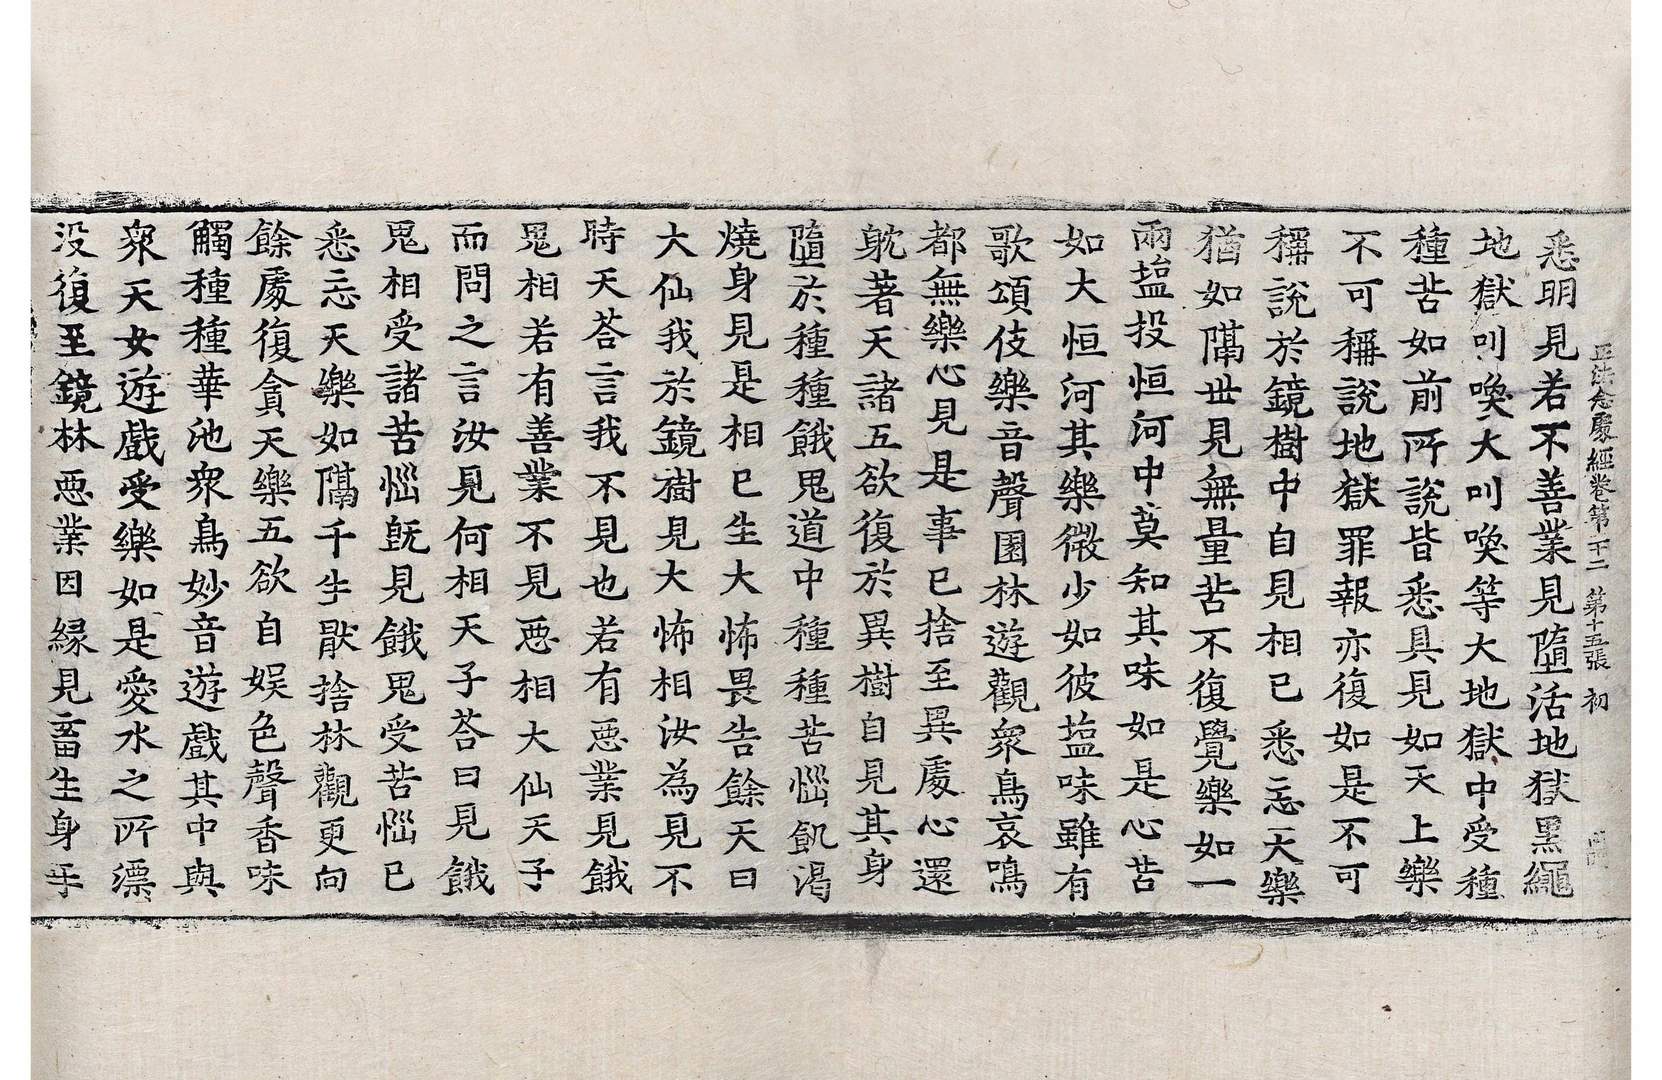 正法念處經卷第三十二 第十五張 初
悉明見若不善業見墮活地獄黑繩
地獄叫喚大叫喚等大地獄中受種
種苦如前所說皆悉具見如天上樂
不可稱說地獄罪報亦復如是不可
稱說於鏡樹中自見相已悉忘天樂
猶如隔世見無量苦不復覺樂如一
兩塩投恒河中莫知其味如是心苦
如大恒河其樂微少如彼塩味雖有
歌頌伎樂音聲園林遊觀衆鳥哀鳴
都無樂心見是事已捨至異處心還
躭著天諸五欲復於異樹自見其身
墮於種種餓鬼道中種種苦惱飢渴
燒身見是相已生大怖畏告餘天曰
大仙我於鏡樹見大怖相汝為見不
時天荅言我不見也若有惡業見餓
鬼相若有善業不見惡相大仙天子
而問之言汝見何相天子荅曰見餓
鬼相受諸苦惱旣見餓鬼受苦惱已
悉忘天樂如隔千生猒捨林觀更向
餘處復貪天樂五欲自娛色聲香味
觸種種華池衆鳥妙音遊戲其中與
衆天女遊戲受樂如是愛水之所漂
没復至鏡林惡業因緣見畜生身乎